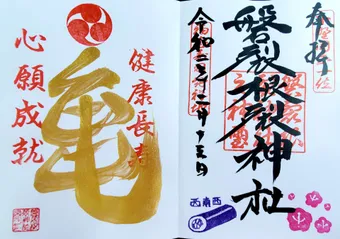 奉拝
磐裂根裂神社
令和二年二月十
西南西
健康長寿
亀
心願成就